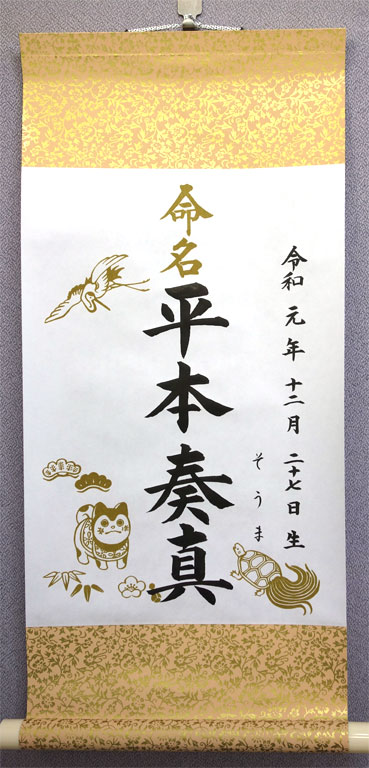 令和元年十二月二十七日生
命名
平本奏真
そうま